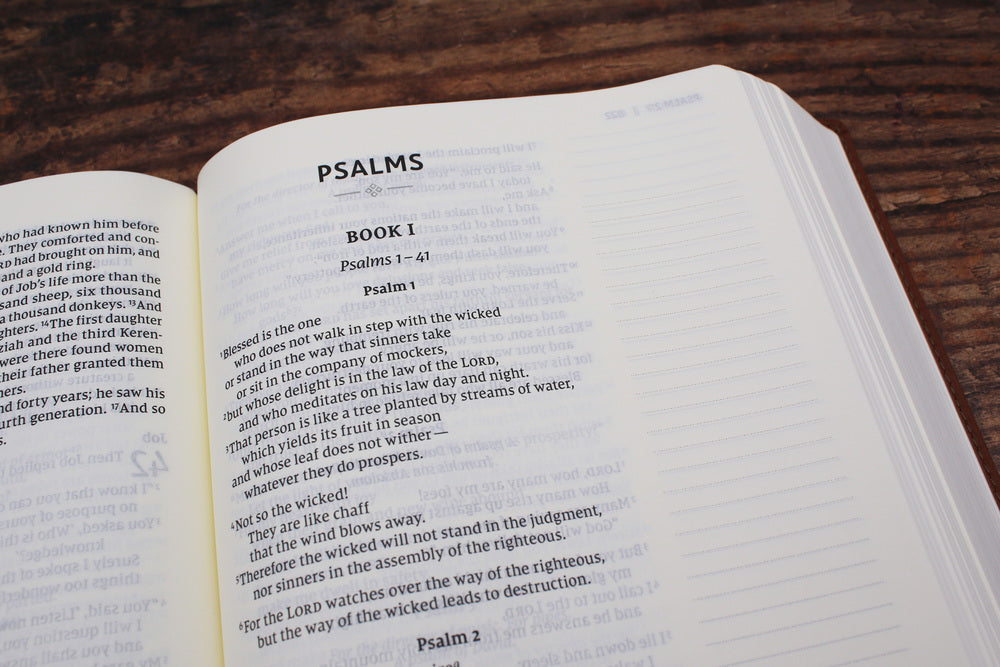 who had known him before
e. They comforted and con-
RD had brought on him, and
and a gold ring.
of Job's life more than the
sand sheep, six thousand
a thousand donkeys. ¹³And
ghters. ¹⁴The first daughter
ziah and the third Keren-
were there found women
their father granted them
hers.
nd forty years; he saw his
urth generation. ¹⁷And so
s.
PSALMS
BOOK I
Psalms 1–41
Psalm 1
¹Blessed is the one
who does not walk in step with the wicked
or stand in the way that sinners take
or sit in the company of mockers,
²but whose delight is in the law of the LORD,
and who meditates on his law day and night.
³That person is like a tree planted by streams of water,
which yields its fruit in season
and whose leaf does not wither—
whatever they do prospers.
⁴Not so the wicked!
They are like chaff
that the wind blows away.
⁵Therefore the wicked will not stand in the judgment,
nor sinners in the assembly of the righteous.
⁶For the LORD watches over the way of the righteous,
but the way of the wicked leads to destruction.
Psalm 2